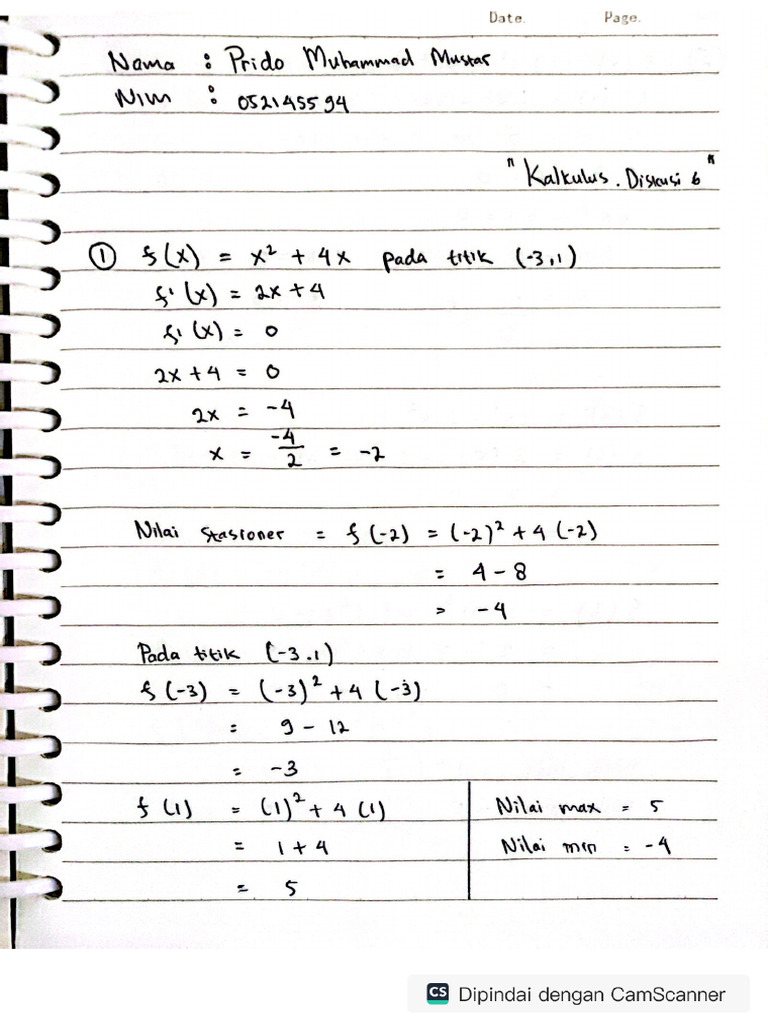 Date. Page.
Nama : Prido Muhammad Mustar
Nim : 052145594
"Kalkulus. Diskusi 6"
① f(x) = x² + 4x pada titik (-3,1)
f'(x) = 2x + 4
f'(x) = 0
2x + 4 = 0
2x = -4
x = -4/2 = -2
Nilai Stasioner = f(-2) = (-2)² + 4(-2)
= 4 - 8
= -4
Pada titik (-3.1)
f(-3) = (-3)² + 4(-3)
= 9 - 12
= -3
f(1) = (1)² + 4(1)
= 1 + 4
= 5
Nilai max = 5
Nilai min = -4
CS Dipindai dengan CamScanner